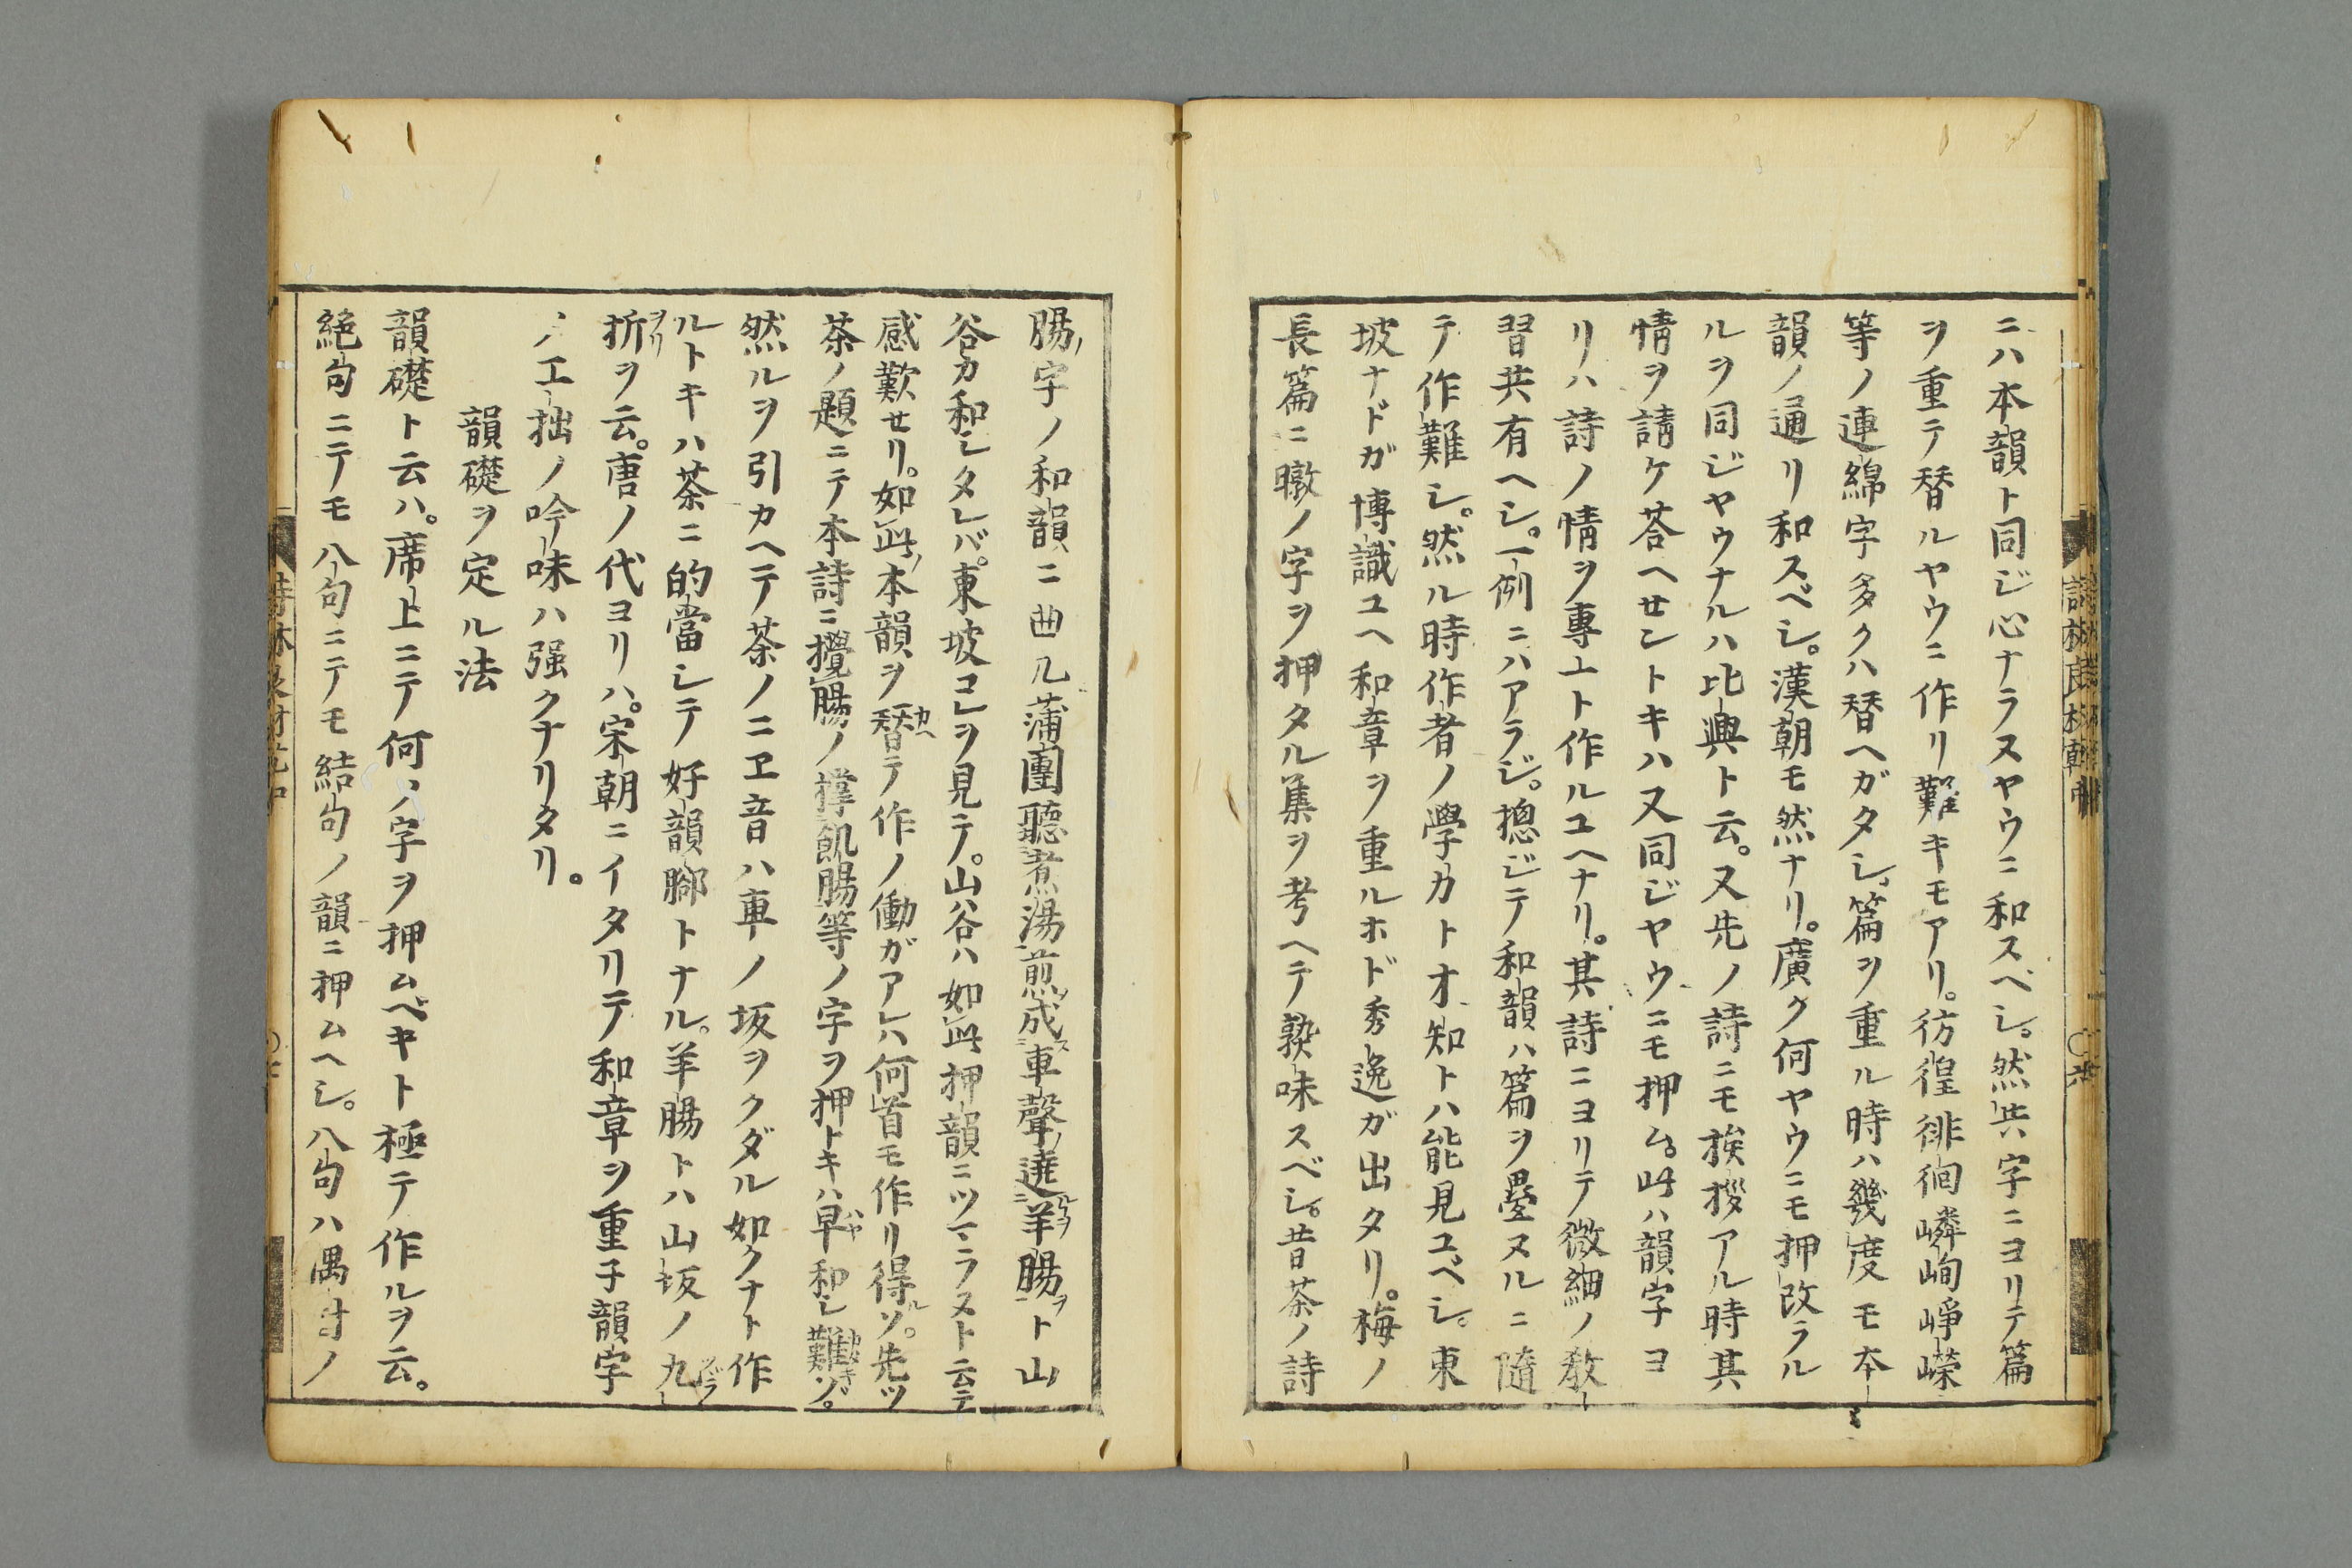 ニハ本韻ト同ジ心ナラスヤウニ和スベシ。然共字ニヨリテ篇
ヲ重テ替ルヤウニ作リ難キモアリ。彷徨徘徊嶙峋崢嶸
等ノ連綿字多クハ替ヘガタシ。篇ヲ重ル時ハ幾度モ本
韻ノ通リ和スベシ。漢朝モ然ナリ。廣ク何ヤウニモ押改ラル
ルヲ同ジヤウナルハ比興ト云。又先ノ詩ニモ挨拶アル時其
情ヲ請ケ荅ヘセントキハ又同ジヤウニモ押ム。此ハ韻字ヨ
リハ詩ノ情ヲ專ニト作ルユヘナリ。其詩ニヨリテ微細ノ敎
習共有ヘシ。一例ニハアラジ。摠ジテ和韻ハ篇ヲ疊ヌルニ隨
テ作難シ。然ル時作者ノ學力ト才知トハ能見ユベシ。東
坡ナドガ博識ユヘ和章ヲ重ルホド秀逸ガ出タリ。梅ノ
長篇ニ暾ノ字ヲ押タル集ヲ考ヘテ熟味スベシ。昔茶ノ詩
腸ノ字ノ和韻ニ曲几蒲團聽煮湯煎成車聲遶羊腸ヲト山
谷カ和シタレバ。東坡コレヲ見テ。山谷ハ如此押韻ニツマラスト云テ
感歎セリ。如此ノ本韻ヲ替テ作ノ働ガアレハ何首モ作リ得ルソ。先ツ
茶ノ題ニテ本詩ニ攪腸ノ撑飢腸等ノ字ヲ押トキハ早和シ難ゾ。
然ルヲ引カヘテ茶ノニヱ音ハ車ノ坂ヲクダル如クナト作
ルトキハ茶ニ的當シテ好韻脚トナル。羊腸トハ山坂ノ九
折ヲ云。唐ノ代ヨリハ。宋朝ニイタリテ和章ヲ重子韻字
ノ工拙ノ吟味ハ强クナリタリ。
韻礎ヲ定ル法
韻礎ト云ハ。席上ニテ何ノ字ヲ押ムベキト極テ作ルヲ云。
絶句ニテモ八句ニテモ結句ノ韻ニ押ムヘシ。八句ハ偶對ノ